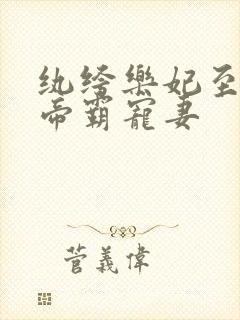 纨绔樂妃至
帝霸寵妻
菅義偉